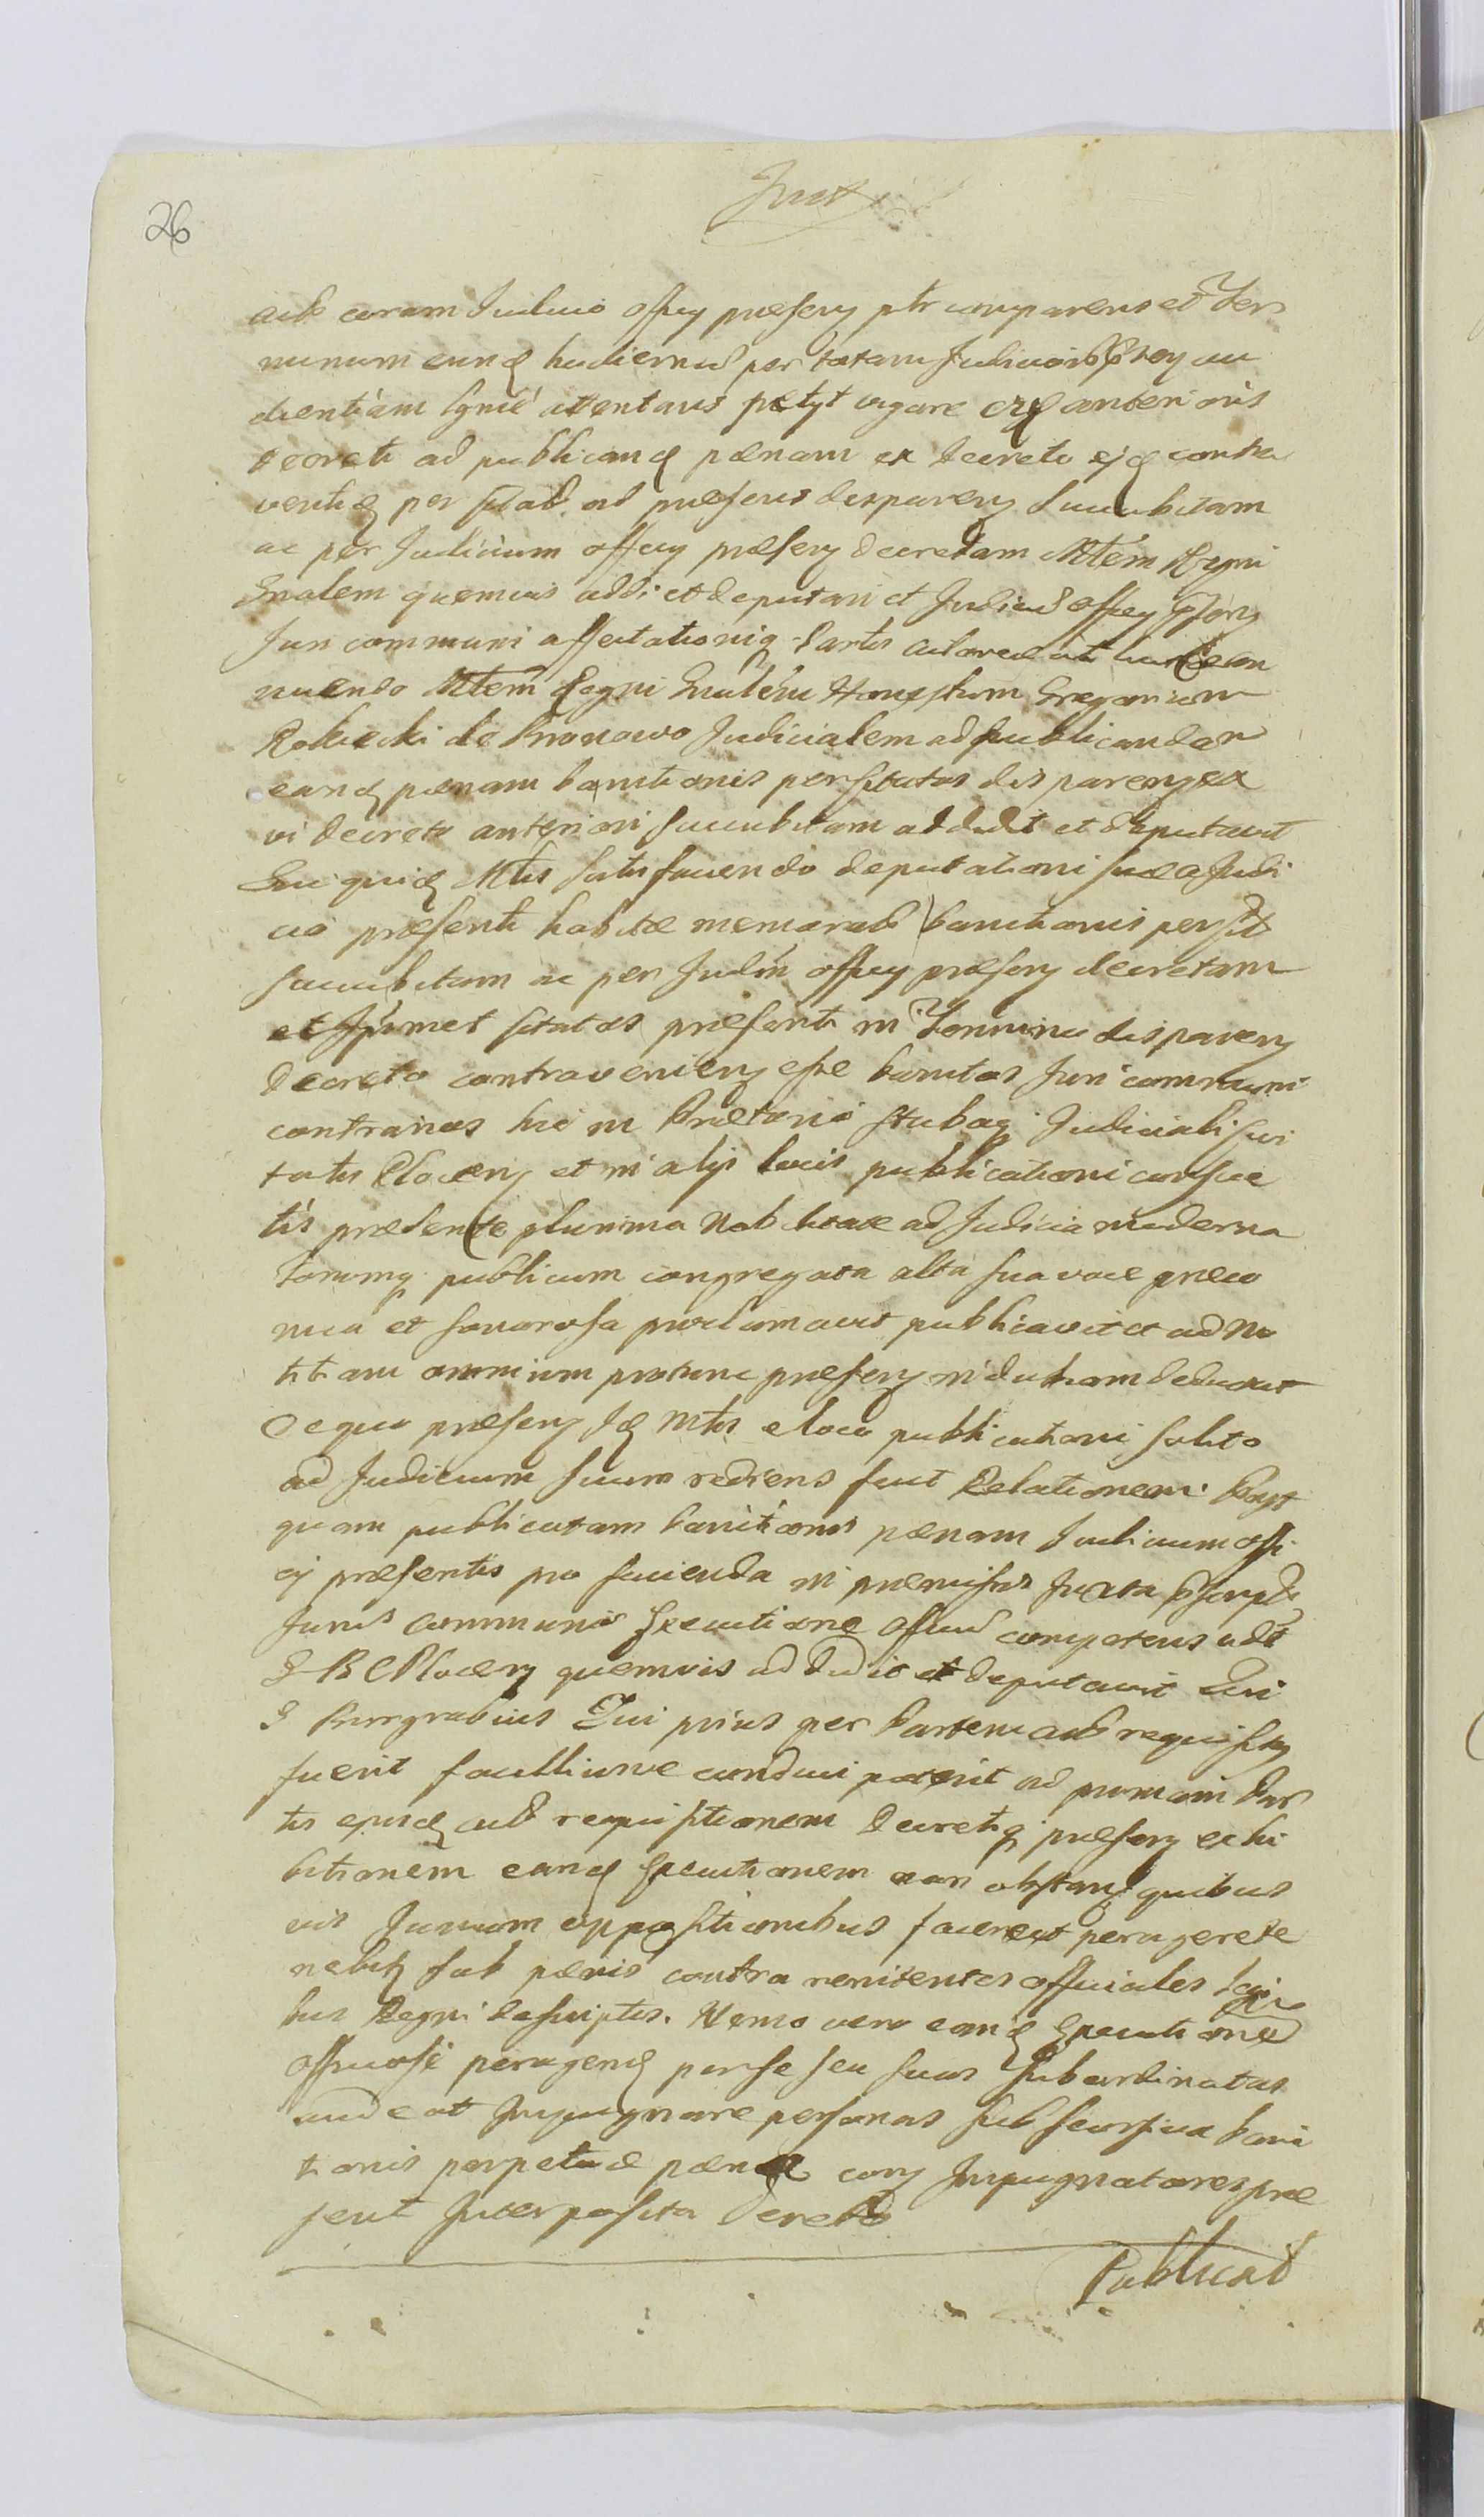 26
act coram Judicio officy præseny ptr comparens et Ter
minum eund hodiernu per totam Judicior au
dientiam lgmé attentans petyt vigore anterioris
decreti ad publicand pænam ex Decreto contra
ventu per Citat ad præsens disparens succubitam
ac per Judicium officy præseny decretam Mtem Regni
Gnalem quemvis addi et deputari et Judiciu officy
Juri communi affectationiq Partis
nuendo Mtem Regni Gnalem Honestum Gregorium
de Bronowo Judicialem ad publicandam
eand pænam banitionis per Citatos disparens ex
vi decreti anteriori succubitam addidit et deputavit
Qui quid Mtis satisfaciendo deputationi suæ a Judi
cio præsenti habitæ memorat banitionis per Cit
succubitam ac per Judm officy præseny decretam
et Jpsmet Citatos præsenti in Termino dispareny
Decreto contraveniens esse banitos Juri communi
contrarios hic in Prætorio Stubaq Judiciali Civi
tatis Ploceny et in alijs locis publicationi consue
tis præsente plurima Nobilitate ad Judicia moderna
Forumq publicum congregata altà sua voce præco
nica et sonorosa proclamavit publicavit et ad no
titiam omnium protunc præseny deduxit
De quo præseny Jd Mtis e loco publicationi solito
ad Judicium suum rediens fecit Relationem. Post
quam publicatam banitionis pænam Judicium offi
cij præsentis pro facienda in præmissis Juxta
Juris communis Executione Officiu competens
Ploceny quemvis addidit et deputavit Qui
G Burgrabius Qui prius per Partem act requisitus
fuerit faciliusve conduci poterit ad primam Par
tis ejusd act requisitionem Decretiq præseny exhi
bitionem eand Executionem non obstant quibus
vis Jurium oppositionibus facere et peragere te
nebitz sub pænis contra renitentes officiales legi
bus Regni descriptis. Nemo vero eand Executione
officiose peragend per se seu suas subordinatas
audeat Jmpugnare personas sub scorsiva bani
tionis perpetuæ pænæ cony Jmpugnatores præ
senti Jnterposita Decreto
Publicat